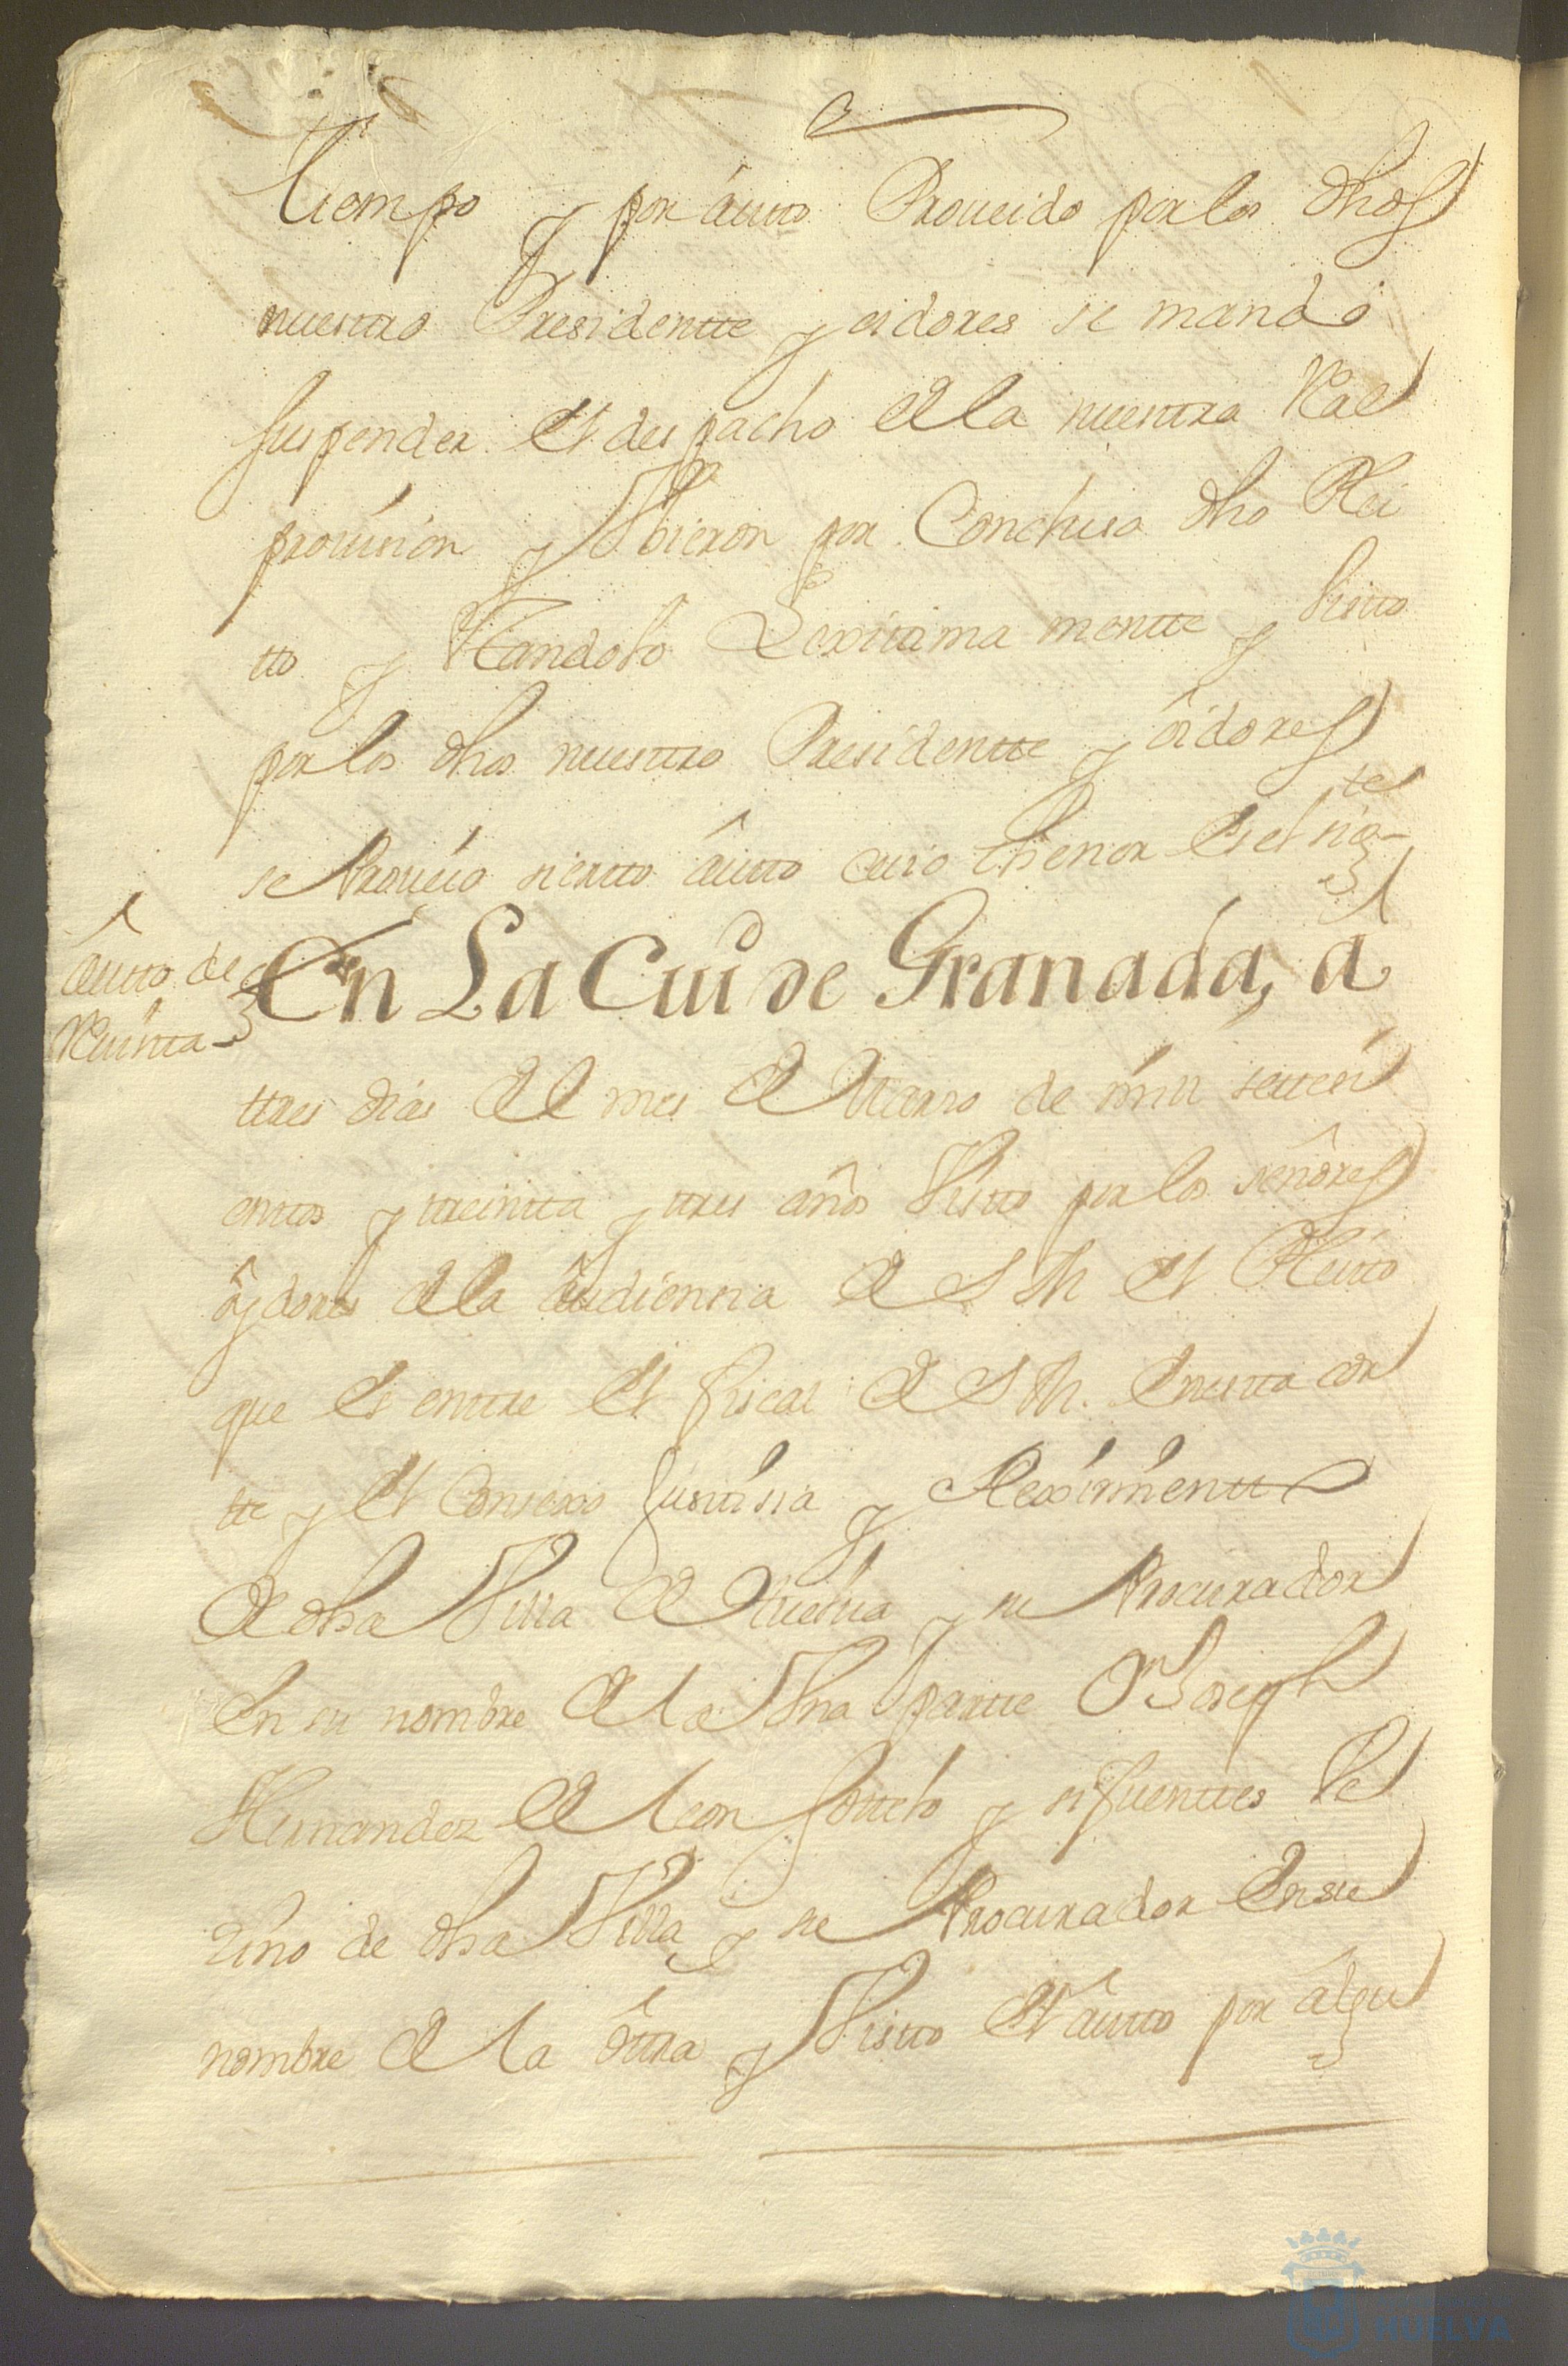 tiempo y por âutto Proueido por los dhos
nuestro Presidentte y oidores se mandó
suspender el despacho de la nuestra Ral
prouision y Vbieron por Conclusa dho Plei
tto y estandolo Lexitima mentte y Vistto
por los dhos nuestro Presidentte y ôidores
se Proueio sierto âutto cuio thenor es el sigte
âutto de
Reuista
En La Ciud de Granada, â
ttres dias de el mes de Marzo de mill setteci
enttos y treintta y tres años Visto por los señôres
ôydores de la âudiensia de S M el Pleitto
que es enttre el fiscal de S M. en esta cor
tte y el Consexo Justisia y Reximientto
de dha Villa de Huelua y su Procurador
en su nombre de la Vna partte Dn Joseph
Hernandez de leon sottelo y sifuenttes Ve
zino de dha Villa y su Procurador en su
nombre de la ôttra y Visto el âutto por âlgu
HUELVA